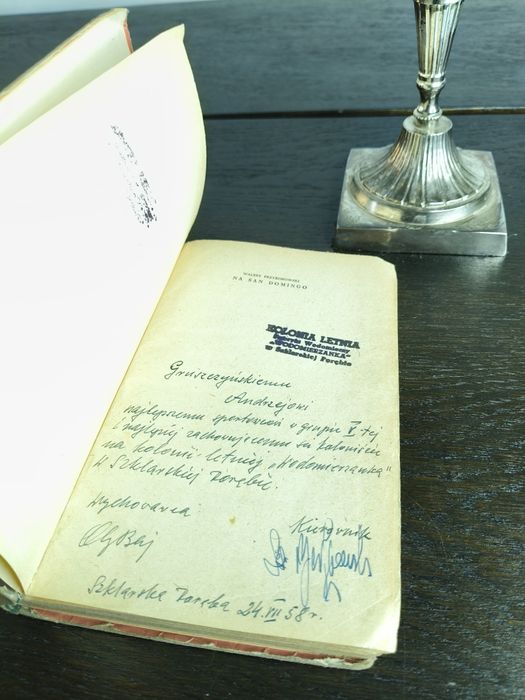 WALERY PRZYBOROWSKI
NA SAN DOMINGO
KOLONIA LETNIA
Wodomierzy
"WODOMIERZANKA"
w Szklarskiej Porębie
Gruszczyńskiemu
Andrzejowi
najlepszemu sportowcowi w grupie V-tej
i najlepiej zachowującemu się koloniście
na kolonii letniej "Wodomierzanka"
w Szklarskiej Porębie.
Wychowawca
Kierownik
Szklarska Poręba 24.VII 58 r.